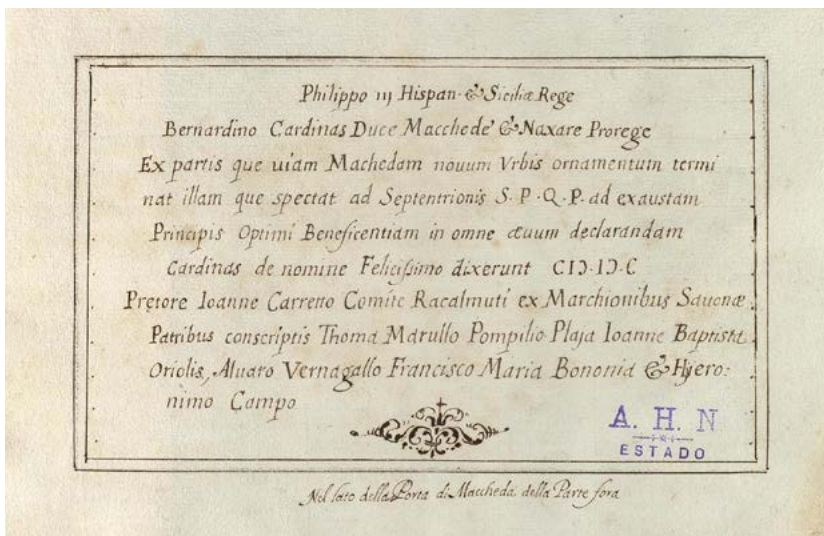 Philippo iij Hispan. & Siciliæ Rege
Bernardino Cardinas Duce Macchede & Naxare Prorege
Ex partis que uiam Machedam nouum Vrbis ornamentum termi
nat illam que spectat ad Septentrionis S. P. Q. P. ad exaustam
Principis Optimi Beneficentiam in omne æuum declarandam
Cardinas de nomine Felicissimo dixerunt CIƆ.IƆ.C
Pretore Ioanne Carretto Comite Racalmuti ex Marchionibus Sauonæ
Patribus conscriptis Thoma Marullo Pompilio Plaja Ioanne Baptista
Oriolis, Aluaro Vernagallo Francisco Maria Bononia & Hjero:
nimo Campo
A. H. N
ESTADO
Nel lato della Porta di Maccheda della Parte fora